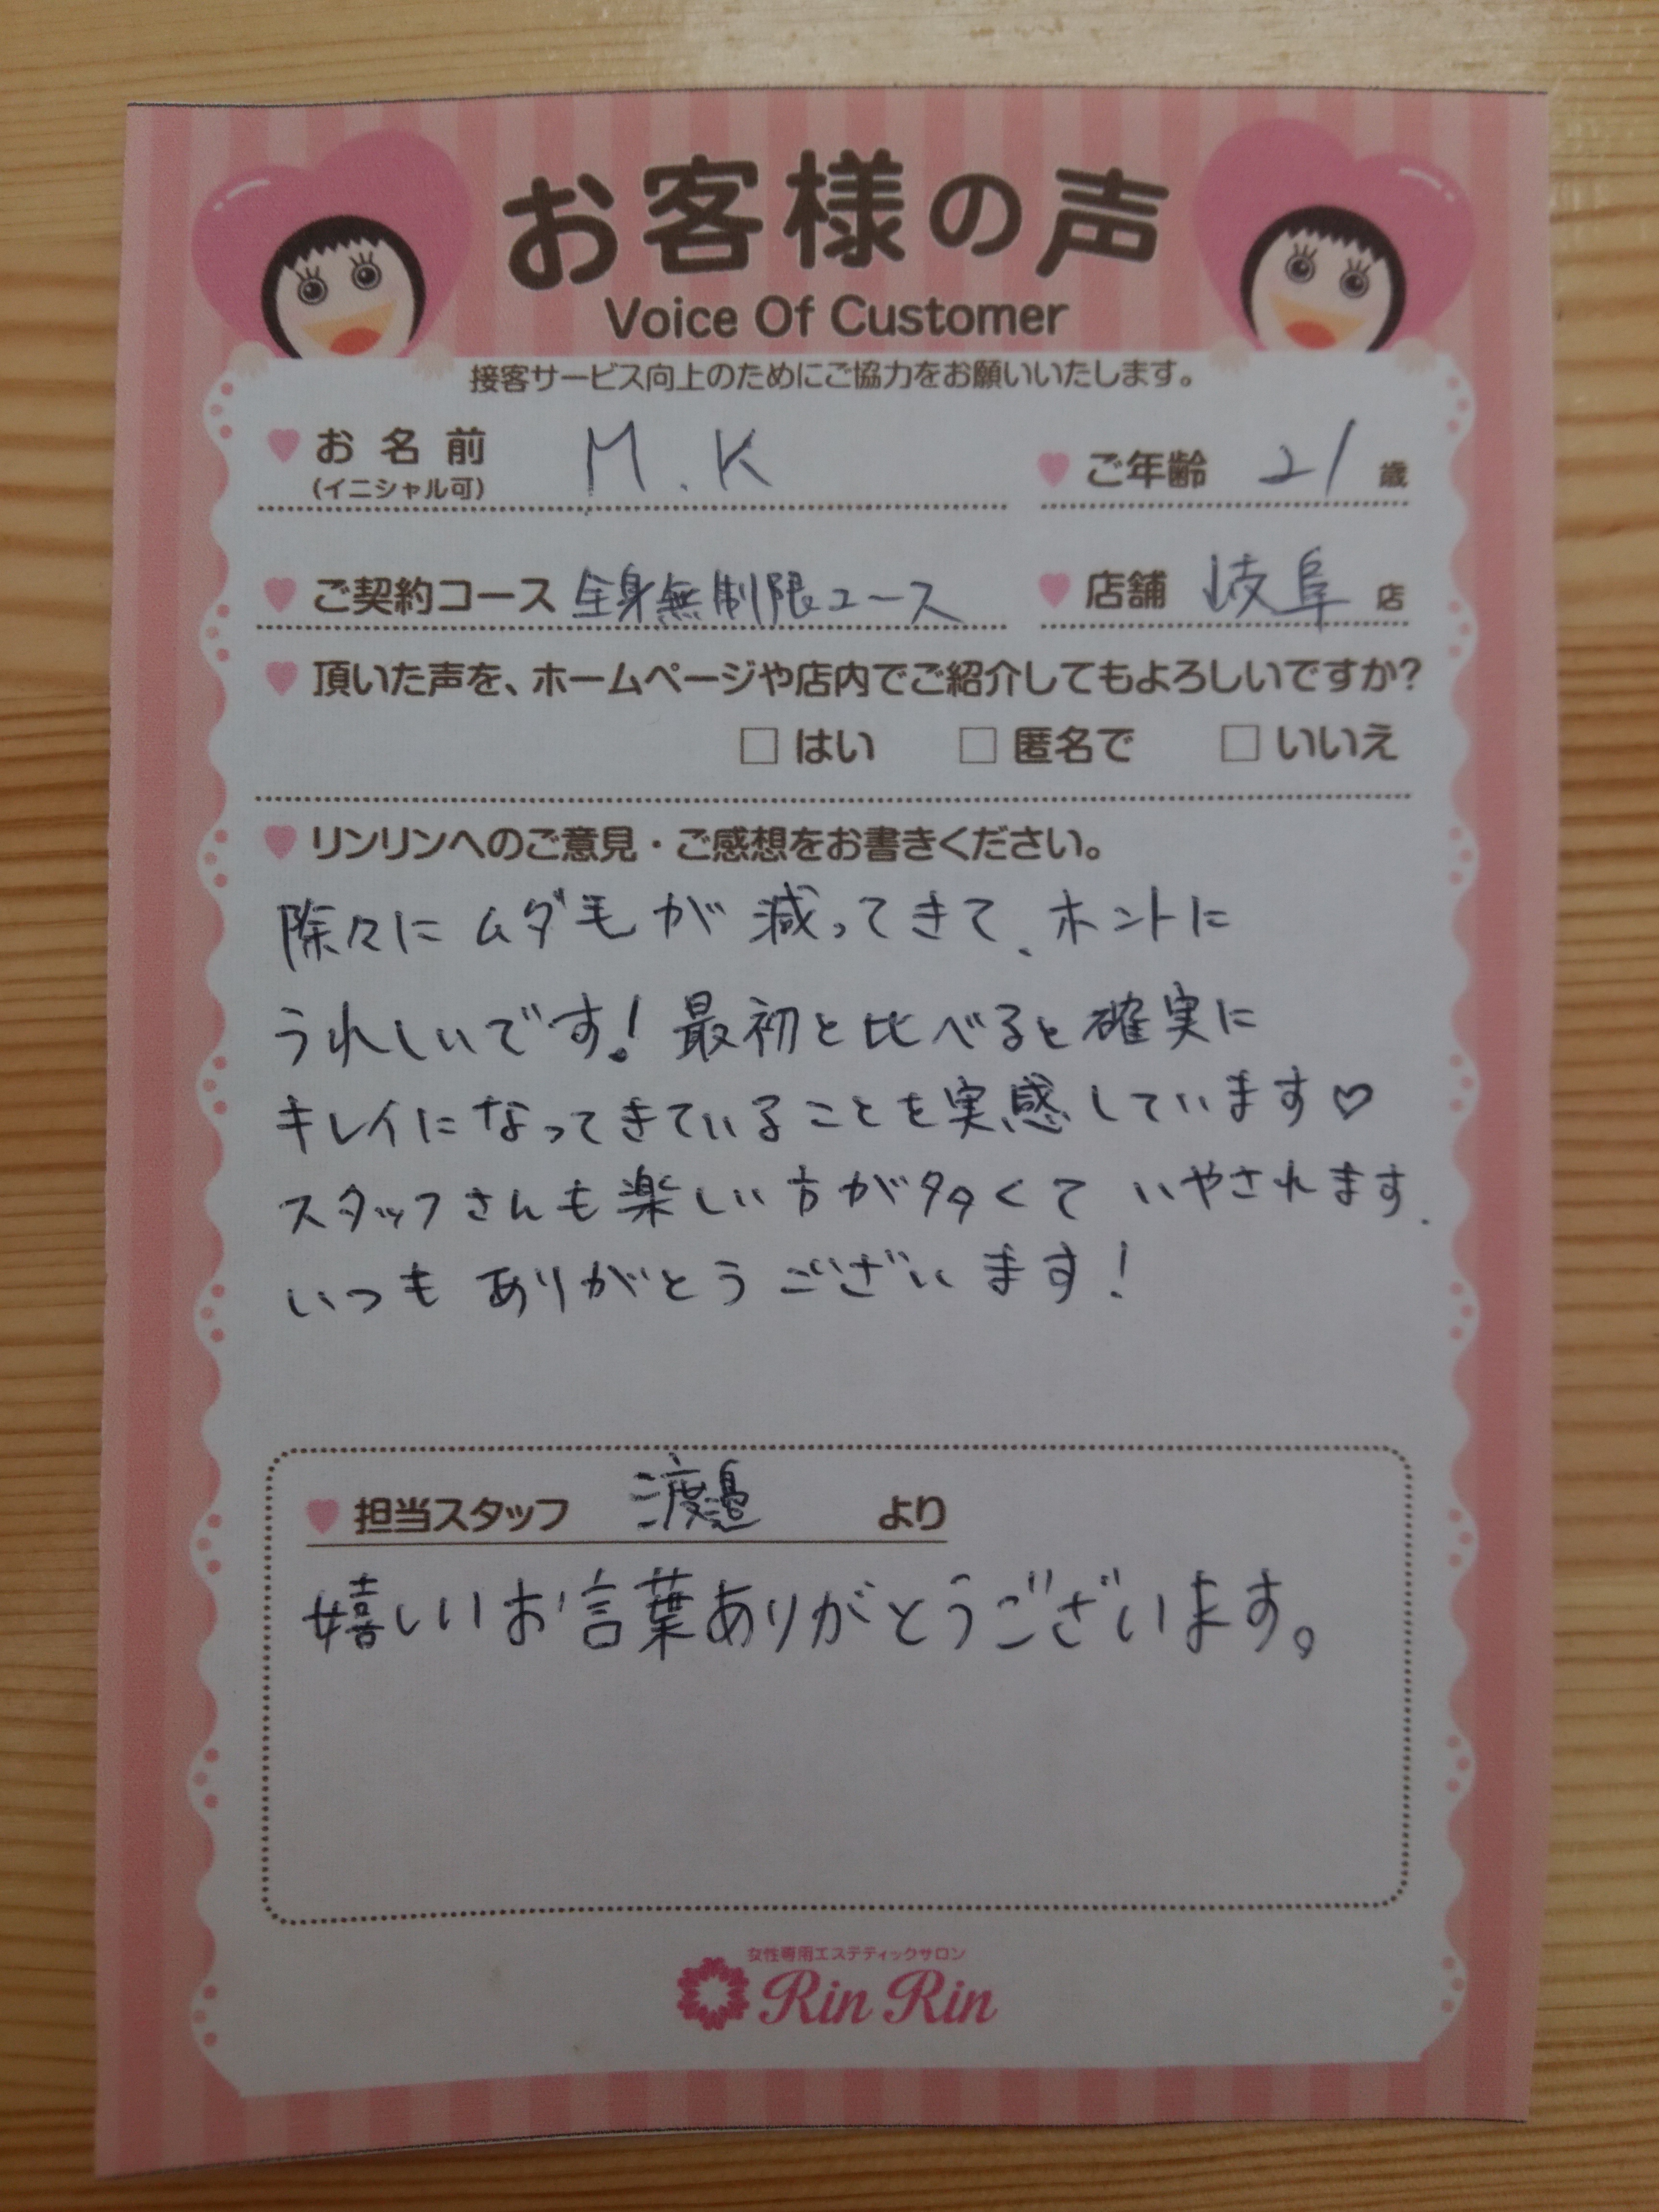 お客様の声
Voice Of Customer
接客サービス向上のためにご協力をお願いいたします。
お名前 M.K
(イニシャル可)
ご年齢 21 歳
ご契約コース 全身無制限コース
店舗 岐阜 店
頂いた声を、ホームページや店内でご紹介してもよろしいですか?
□ はい □ 匿名で □ いいえ
リンリンへのご意見・ご感想をお書きください。
除々にムダ毛が減ってきて、ホントに
うれしいです!最初と比べると確実に
キレイになってきていることを実感しています♡
スタッフさんも楽しい方が多くていやされます。
いつもありがとうございます!
担当スタッフ 渡邉 より
嬉しいお言葉ありがとうございます。
女性専用エステティックサロン
Rin Rin